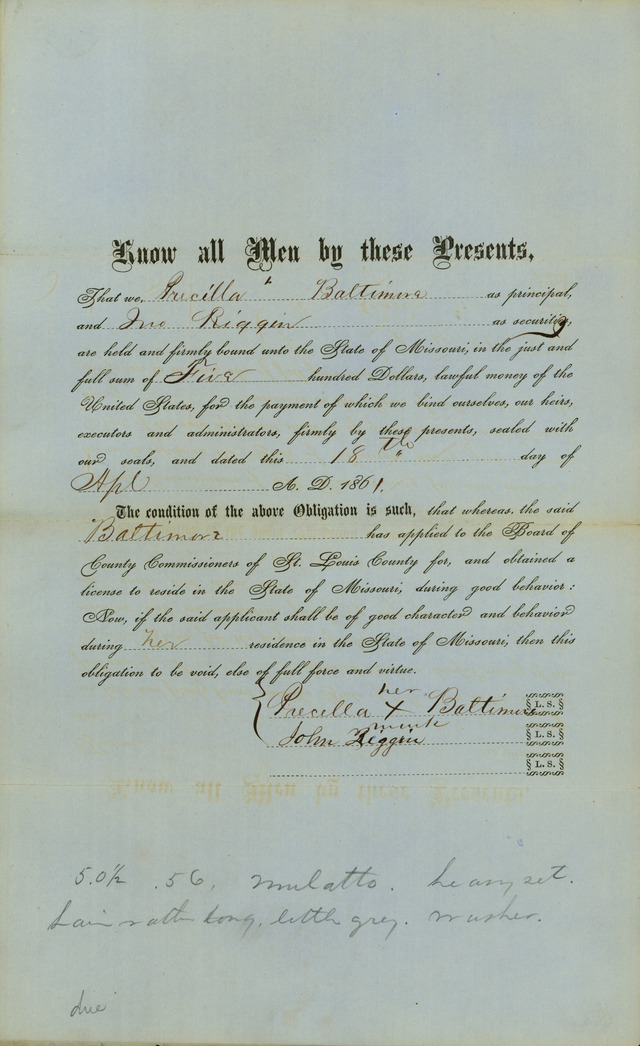 Know all Men by these Presents,
That we, Precilla Baltimore as principal,
and Jno Riggin as security,
are held and firmly bound unto the State of Missouri, in the just and
full sum of Five hundred Dollars, lawful money of the
United States, for the payment of which we bind ourselves, our heirs,
executors and administrators, firmly by these presents, sealed with
our seals, and dated this 18th day of
Apl A. D. 1861.
The condition of the above Obligation is such, that whereas, the said
Baltimore has applied to the Board of
County Commissioners of St. Louis County for, and obtained a
license to reside in the State of Missouri, during good behavior:
Now, if the said applicant shall be of good character and behavior
during her residence in the State of Missouri, then this
obligation to be void, else of full force and virtue.
her
Precilla X Baltimore L. S.
mark
John Riggin L. S.
L. S.
5.0½ .56, mulatto. heavy set.
hair rather long, little grey. washer.